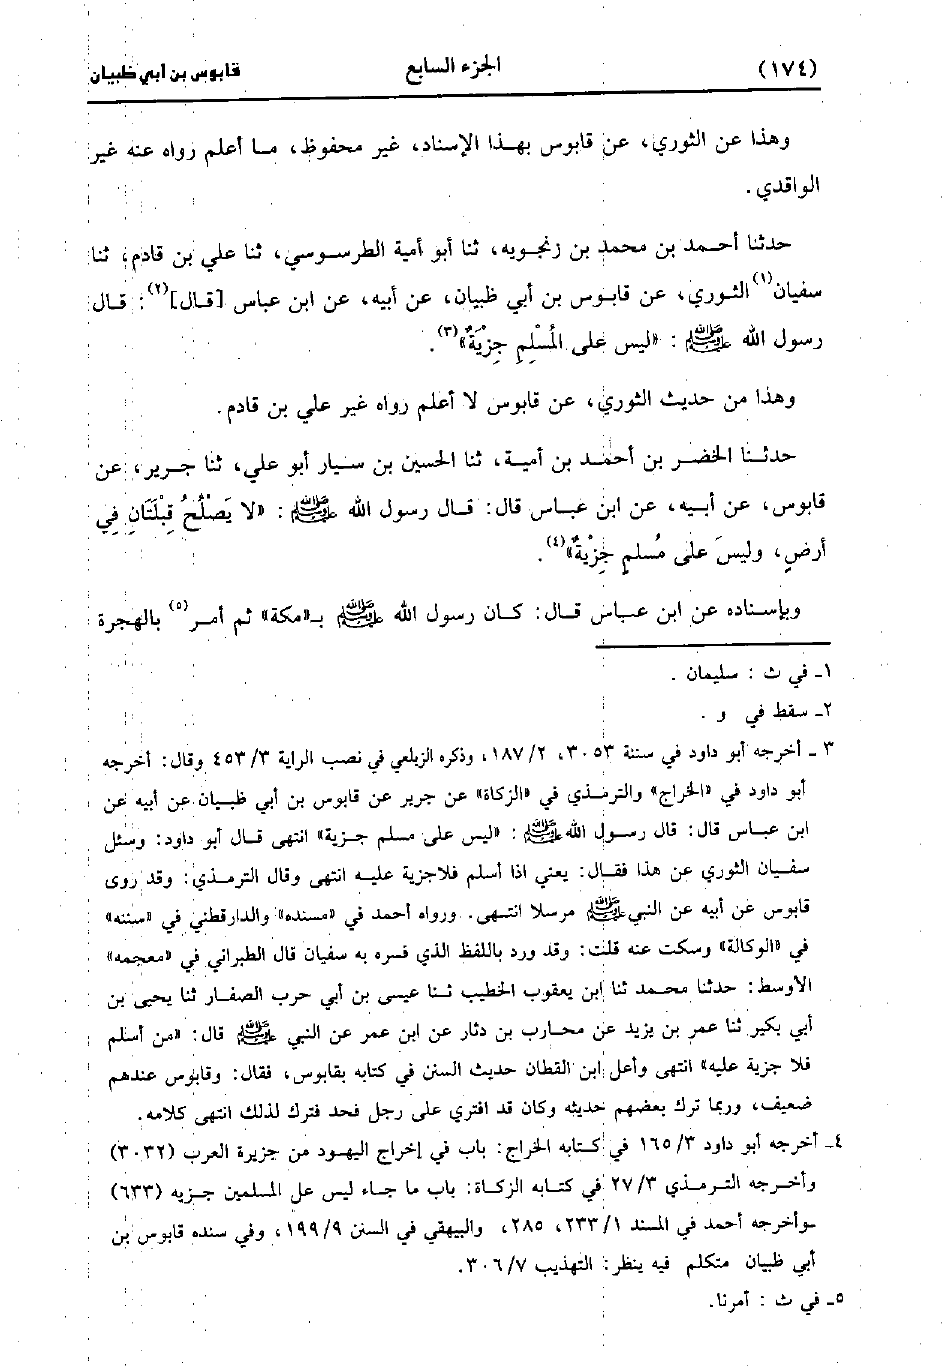 (١٧٤) الجزء السابع قابوس بن أبي ظبيان
وهذا عن الثوري، عن قابوس بهذا الإسناد، غير محفوظ، ما أعلم رواه عنه غير
الواقدي.
حدثنا أحمد بن محمد بن زنجويه، ثنا أبو أمية الطرسوسي، ثنا علي بن قادم، ثنا
سفيان(١) الثوري، عن قابوس بن أبي ظبيان، عن أبيه، عن ابن عباس [قال](٢): قال
رسول الله ﷺ : «ليس على المُسْلِمِ جِزْيَةٌ»(٣).
وهذا من حديث الثوري، عن قابوس لا أعلم رواه غير علي بن قادم.
حدثنا الخضر بن أحمد بن أمية، ثنا الحسين بن سيار أبو علي، ثنا جرير، عن
قابوس، عن أبيه، عن ابن عباس قال: قال رسول الله ﷺ : «لا يَصْلُحُ قِبْلَتَانِ فِي
أرضٍ، وليسَ على مُسلمٍ جِزْيةٌ»(٤).
وبإسناده عن ابن عباس قال: كان رسول الله ﷺ بـ«مكة» ثم أمر(٥) بالهجرة
١ـ في ث : سليمان .
٢ـ سقط في و .
٣ ـ أخرجه أبو داود في سننة ٣٠٥٣، ١٨٧/٢، وذكره الزيلعي في نصب الراية ٤٥٣/٣ وقال: أخرجه
أبو داود في «الخراج» والترمذي في «الزكاة» عن جرير عن قابوس بن أبي ظبيان عن أبيه عن
ابن عباس قال: قال رسول الله ﷺ : «ليس على مسلم جزية» انتهى قال أبو داود: وسئل
سفيان الثوري عن هذا فقال: يعني اذا أسلم فلاجزية عليه انتهى وقال الترمذي: وقد روى
قابوس عن أبيه عن النبي ﷺ مرسلا انتهى. ورواه أحمد في «مسنده» والدارقطني في «سننه»
في «الوكالة» وسكت عنه قلت: وقد ورد باللفظ الذي فسره به سفيان قال الطبراني في «معجمه»
الأوسط: حدثنا محمد ثنا ابن يعقوب الخطيب ثنا عيسى بن أبي حرب الصفار ثنا يحيى بن
أبي بكير ثنا عمر بن يزيد عن محارب بن دثار عن ابن عمر عن النبي ﷺ قال: «من أسلم
فلا جزية عليه» انتهى وأعل ابن القطان حديث السنن في كتابه بقابوس، فقال: وقابوس عندهم
ضعيف، وربما ترك بعضهم حديثه وكان قد افتري على رجل فحد فترك لذلك انتهى كلامه.
٤ـ أخرجه أبو داود ١٦٥/٣ في كتابه الخراج: باب في إخراج اليهود من جزيرة العرب (٣٠٣٢)
وأخرجه الترمذي ٢٧/٣ في كتابه الزكاة: باب ما جاء ليس عل المسلمين جزيه (٦٣٣)
وأخرجه أحمد في المسند ٢٣٣/١، ٢٨٥، والبيهقي في السنن ١٩٩/٩، وفي سنده قابوس بن
أبي ظبيان متكلم فيه ينظر: التهذيب ٣٠٦/٧.
٥ـ في ث : أمرنا.